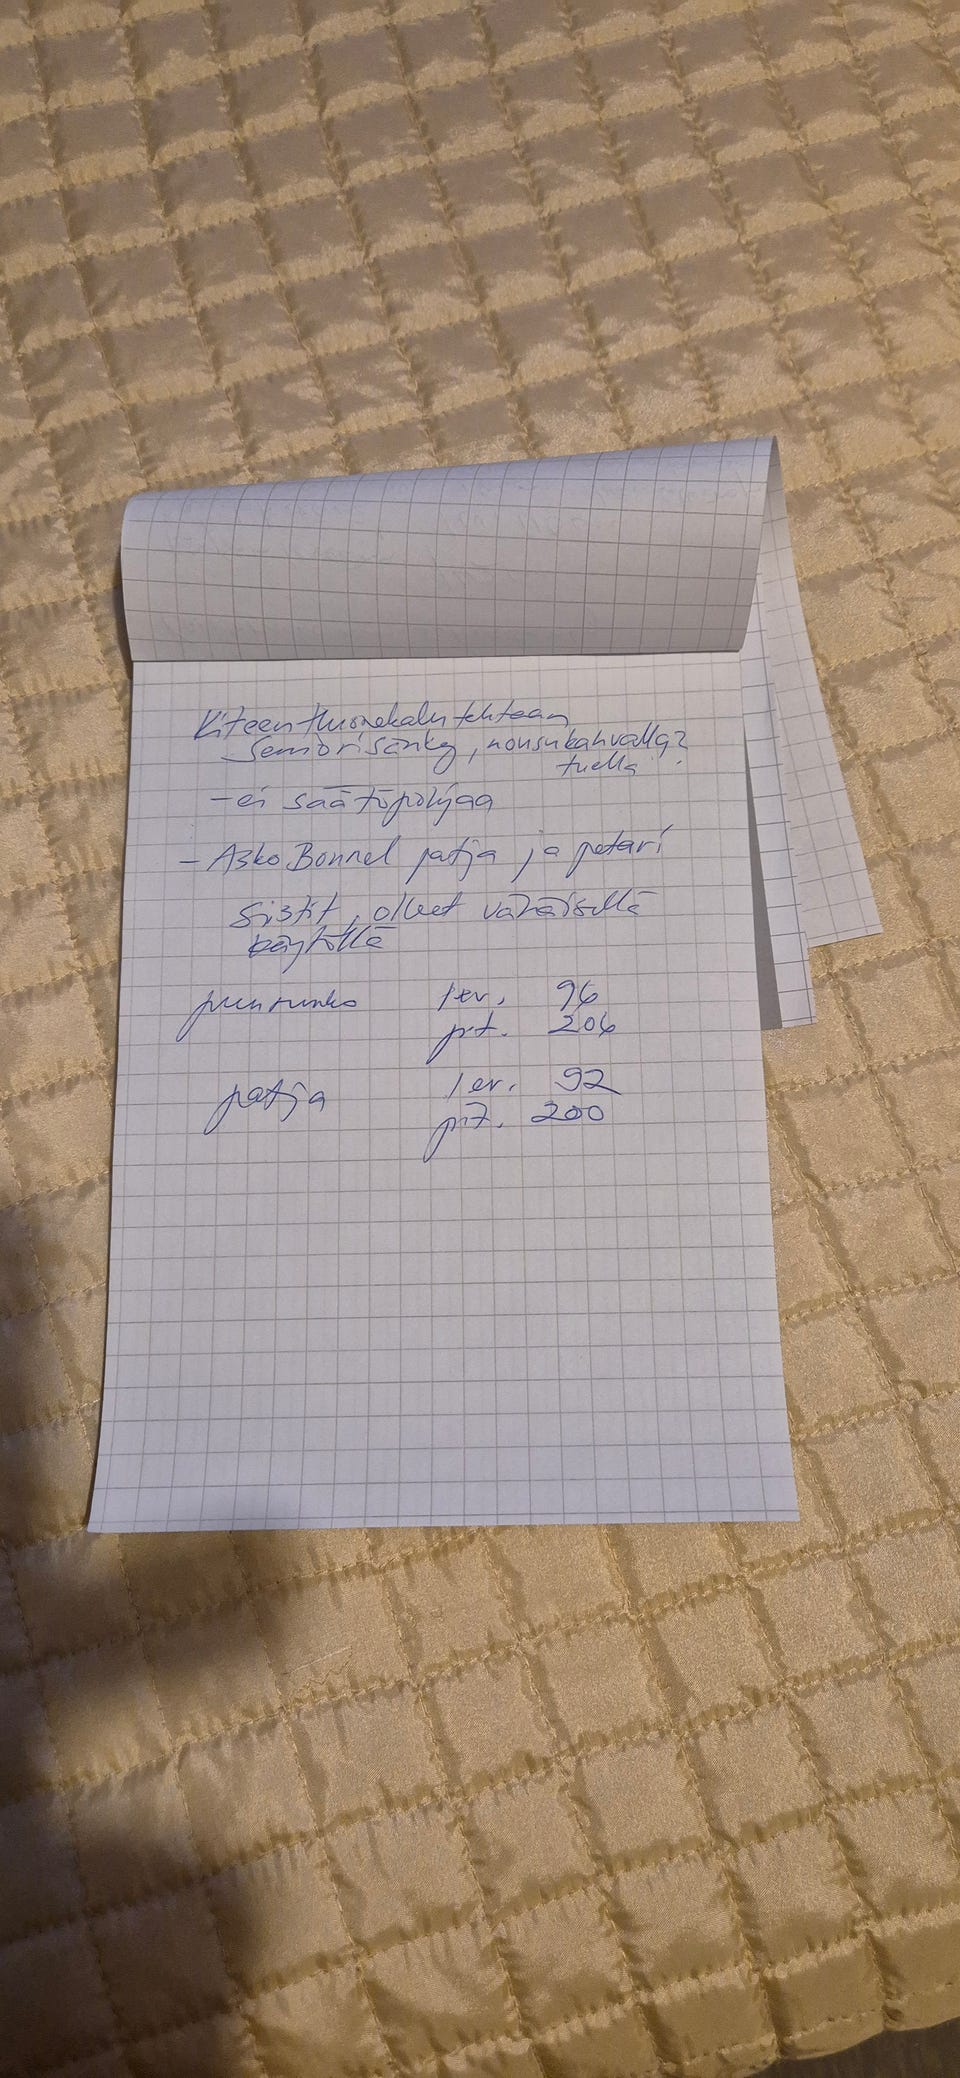 Kiteen Huonekalutehtaan
Seniorisänky, nousukahvalla?
tuella
- ei säätöpohjaa
- Asko Bonnel patja ja petari
Siistit, olleet vähäisellä
käytöllä
puurunko lev. 96
pit. 206
patja lev. 92
pit. 200